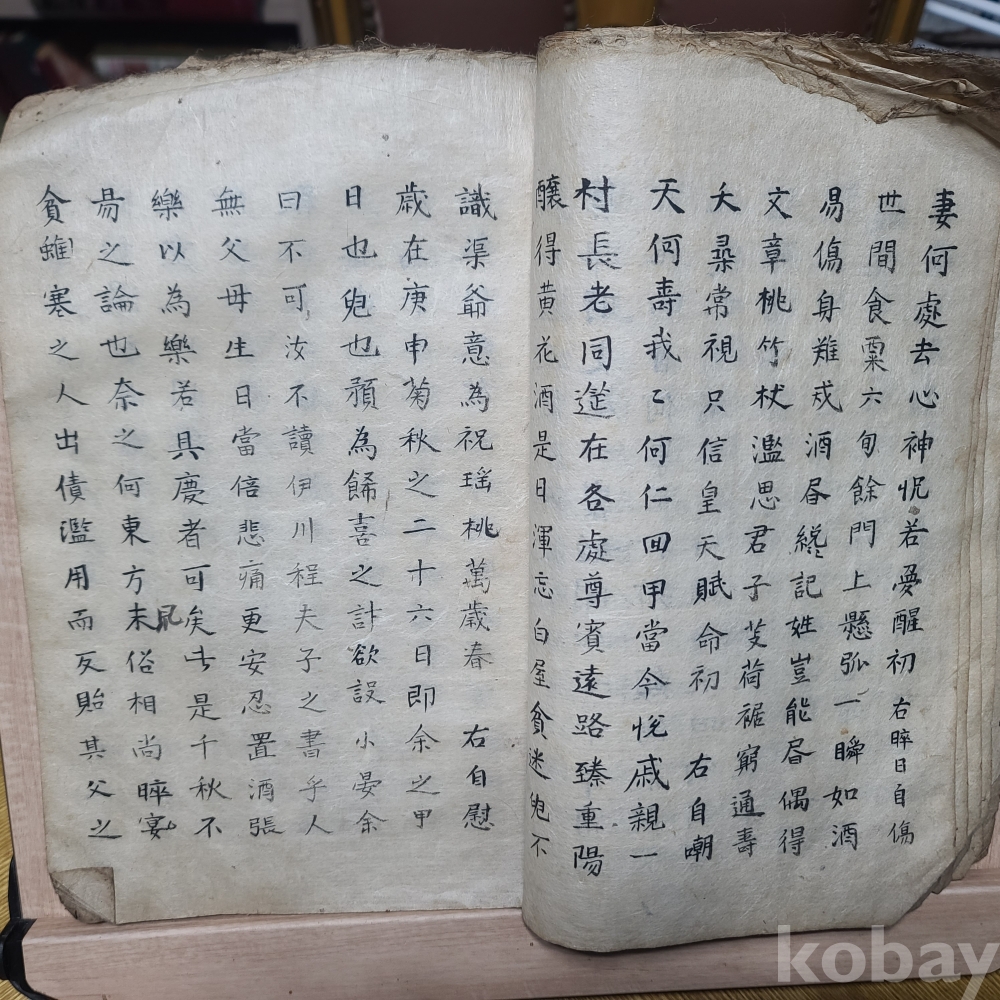 妻何處去心神怳若憂醒初 右晬日自傷
世間食粟六旬餘門上懸弧一瞬如酒
易傷身難戒酒昏縱記姓豈能昏偶得
文章桃竹杖濫思君子芰荷裾窮通壽
夭尋常視只信皇天賦命初 右自嘲
天何壽我〻何仁回甲當今悅戚親一
村長老同筵在各處尊賓遠路臻重陽
釀得黃花酒是日渾忘白屋貧迷兒不
識渠爺意為祝瑤桃萬歲春 右自慰
歲在庚申菊秋之二十六日即余之甲
日也兒也預為餙喜之計欲設小宴余
曰不可汝不讀伊川程夫子之書乎人
無父母生日當倍悲痛更安忍置酒張
樂以為樂若具慶者可矣此是千秋不
昜之論也奈之何東方末俗相尚晬宴
貧難寒之人出債濫用而反貽其父之
kobay